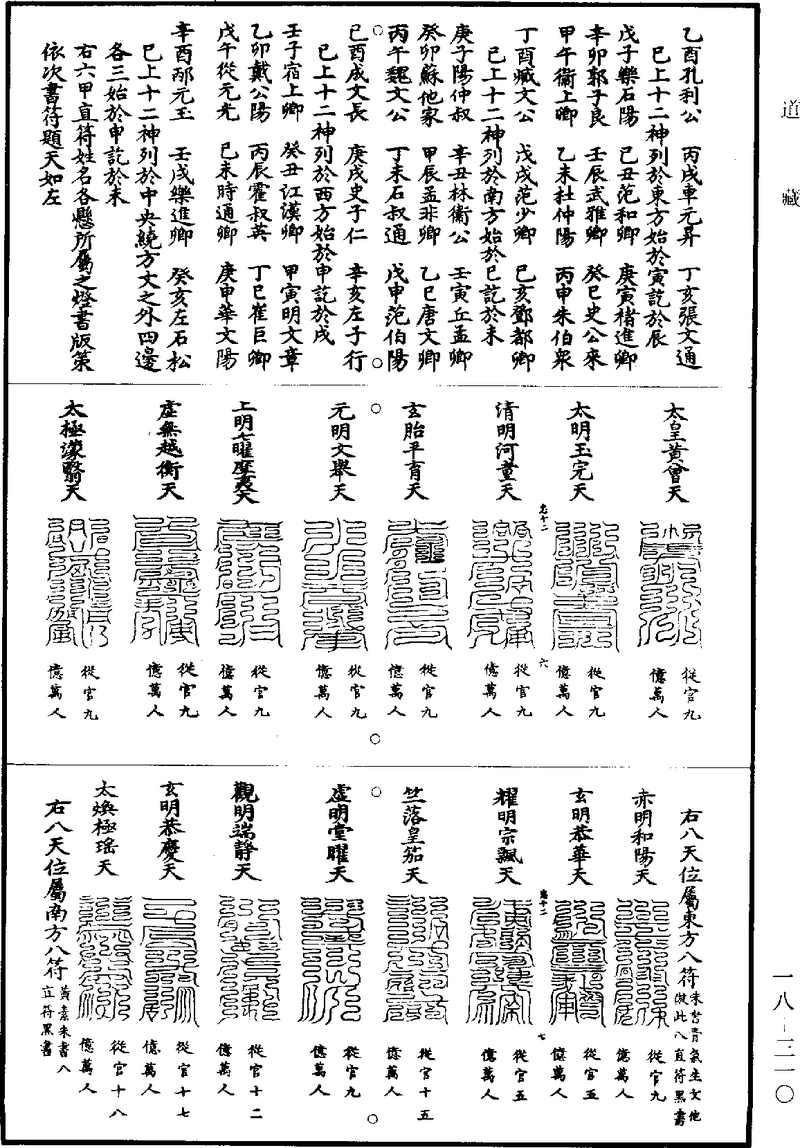 道藏
乙酉孔利公　丙戌車元昇　丁亥張文通
已上十二神列於東方始於寅訖於辰
戊子樂石陽　己丑范和卿　庚寅褚進卿
辛卯郭子良　壬辰武雅卿　癸巳史公來
甲午衞上卿　乙未杜仲陽　丙申朱伯衆
丁酉臧文公　戊戌范少卿　己亥鄧都卿
已上十二神列於南方始於巳訖於未
庚子陽仲叔　辛丑林衞公　壬寅丘孟卿
癸卯蘇他家　甲辰孟非卿　乙巳唐文卿
丙午魏文公　丁未石叔通　戊申范伯陽
己酉成文長　庚戌史子仁　辛亥左子行
已上十二神列於西方始於申訖於戌
壬子宿上卿　癸丑江漢卿　甲寅明文章
乙卯戴公陽　丙辰霍叔英　丁巳崔巨卿
戊午從元光　己未時通卿　庚申華文陽
辛酉邴元玉　壬戌樂進卿　癸亥左石松
已上十二神列於中央繞方文之外四邊
各三始於申訖於未
右六甲直符姓名各懸所屬之燈書版策
依次書符題天如左
太皇黃曾天
從官九
億萬人
太明玉完天
從官九
億萬人
清明河童天
從官九
億萬人
玄胎平育天
從官九
億萬人
元明文舉天
從官九
億萬人
上明七曜摩夷天
從官九
億萬人
虛無越衡天
從官九
億萬人
太極濛翳天
從官九
億萬人
六
右八天位屬東方八符
朱書青氣生文他
倣此八直符黑書
赤明和陽天
從官九
億萬人
玄明恭華天
從官五
億萬人
耀明宗飄天
從官五
億萬人
竺落皇笳天
從官十五
億萬人
虛明堂曜天
從官九
億萬人
觀明端靜天
從官十二
億萬人
玄明恭慶天
從官十七
億萬人
太煥極瑤天
從官十八
億萬人
右八天位屬南方八符
黃素朱書八
直符黑書
七
一八－三一〇